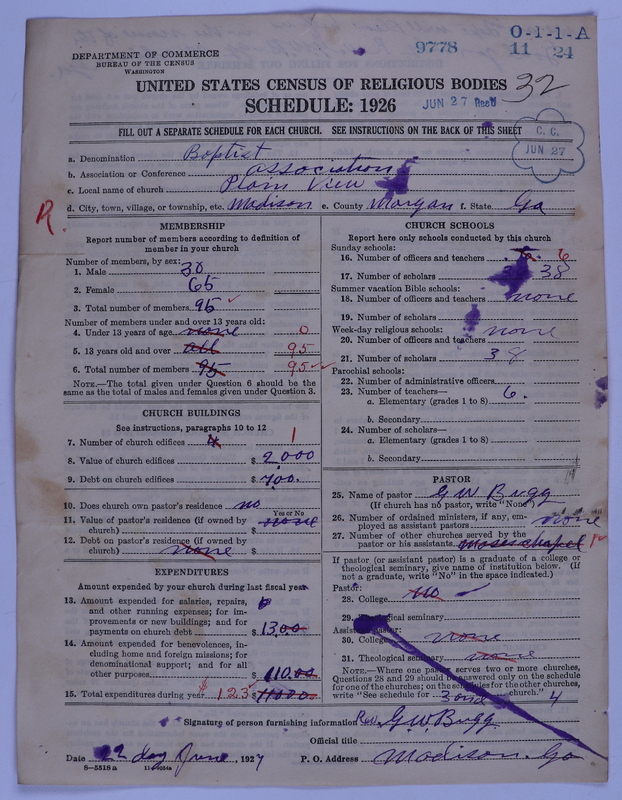 O-1-1-A
9778 11 24
DEPARTMENT OF COMMERCE
BUREAU OF THE CENSUS
WASHINGTON
UNITED STATES CENSUS OF RELIGIOUS BODIES 32
SCHEDULE: 1926 JUN 27 Rec'd
FILL OUT A SEPARATE SCHEDULE FOR EACH CHURCH. SEE INSTRUCTIONS ON THE BACK OF THIS SHEET
C. C.
JUN 27
a. Denomination Baptist
b. Association or Conference Association
c. Local name of church Plain View
d. City, town, village, or township, etc. Madison e. County Morgan f. State Ga
R.
MEMBERSHIP
Report number of members according to definition of
member in your church
Number of members, by sex:
1. Male 30
2. Female 65
3. Total number of members 95
Number of members under and over 13 years old:
4. Under 13 years of age none 0
5. 13 years old and over all 95
6. Total number of members 95 95
NOTE.—The total given under Question 6 should be the
same as the total of males and females given under Question 3.
CHURCH BUILDINGS
See instructions, paragraphs 10 to 12
7. Number of church edifices 1
8. Value of church edifices $ 2,000
9. Debt on church edifices $ 700.
10. Does church own pastor's residence? no
Yes or No
11. Value of pastor's residence (if owned by
church) $ none
12. Debt on pastor's residence (if owned by
church) none $
EXPENDITURES
Amount expended by your church during last fiscal year
13. Amount expended for salaries, repairs,
and other running expenses; for im-
provements or new buildings; and for
payments on church debt $ 13.00
14. Amount expended for benevolences, in-
cluding home and foreign missions; for
denominational support; and for all
other purposes $ 110.00
15. Total expenditures during year $ 123 $ 110.00
CHURCH SCHOOLS
Report here only schools conducted by this church
Sunday schools:
16. Number of officers and teachers 6
17. Number of scholars 38
Summer vacation Bible schools:
18. Number of officers and teachers none
19. Number of scholars
Week-day religious schools: none
20. Number of officers and teachers
21. Number of scholars 38
Parochial schools:
22. Number of administrative officers
23. Number of teachers—
a. Elementary (grades 1 to 8) 6.
b. Secondary
24. Number of scholars—
a. Elementary (grades 1 to 8)
b. Secondary
PASTOR
25. Name of pastor G W Bugg
(If church has no pastor, write "None")
26. Number of ordained ministers, if any, em-
ployed as assistant pastors none
27. Number of other churches served by the
pastor or his assistants
If pastor (or assistant pastor) is a graduate of a college or
theological seminary, give name of institution below. (If
not a graduate, write "No" in the space indicated.)
Pastor:
28. College no
29. Theological seminary
Assistant pastor:
30. College none
31. Theological seminary none
NOTE.—Where one pastor serves two or more churches,
Questions 28 and 29 should be answered only on the schedule
for one of the churches; on the schedules for the other churches,
write "See schedule for 3 and 4 church."
Signature of person furnishing information Rev. G. W. Bugg
Official title
Date day June, 1927 P. O. Address Madison. Ga
8—5518a